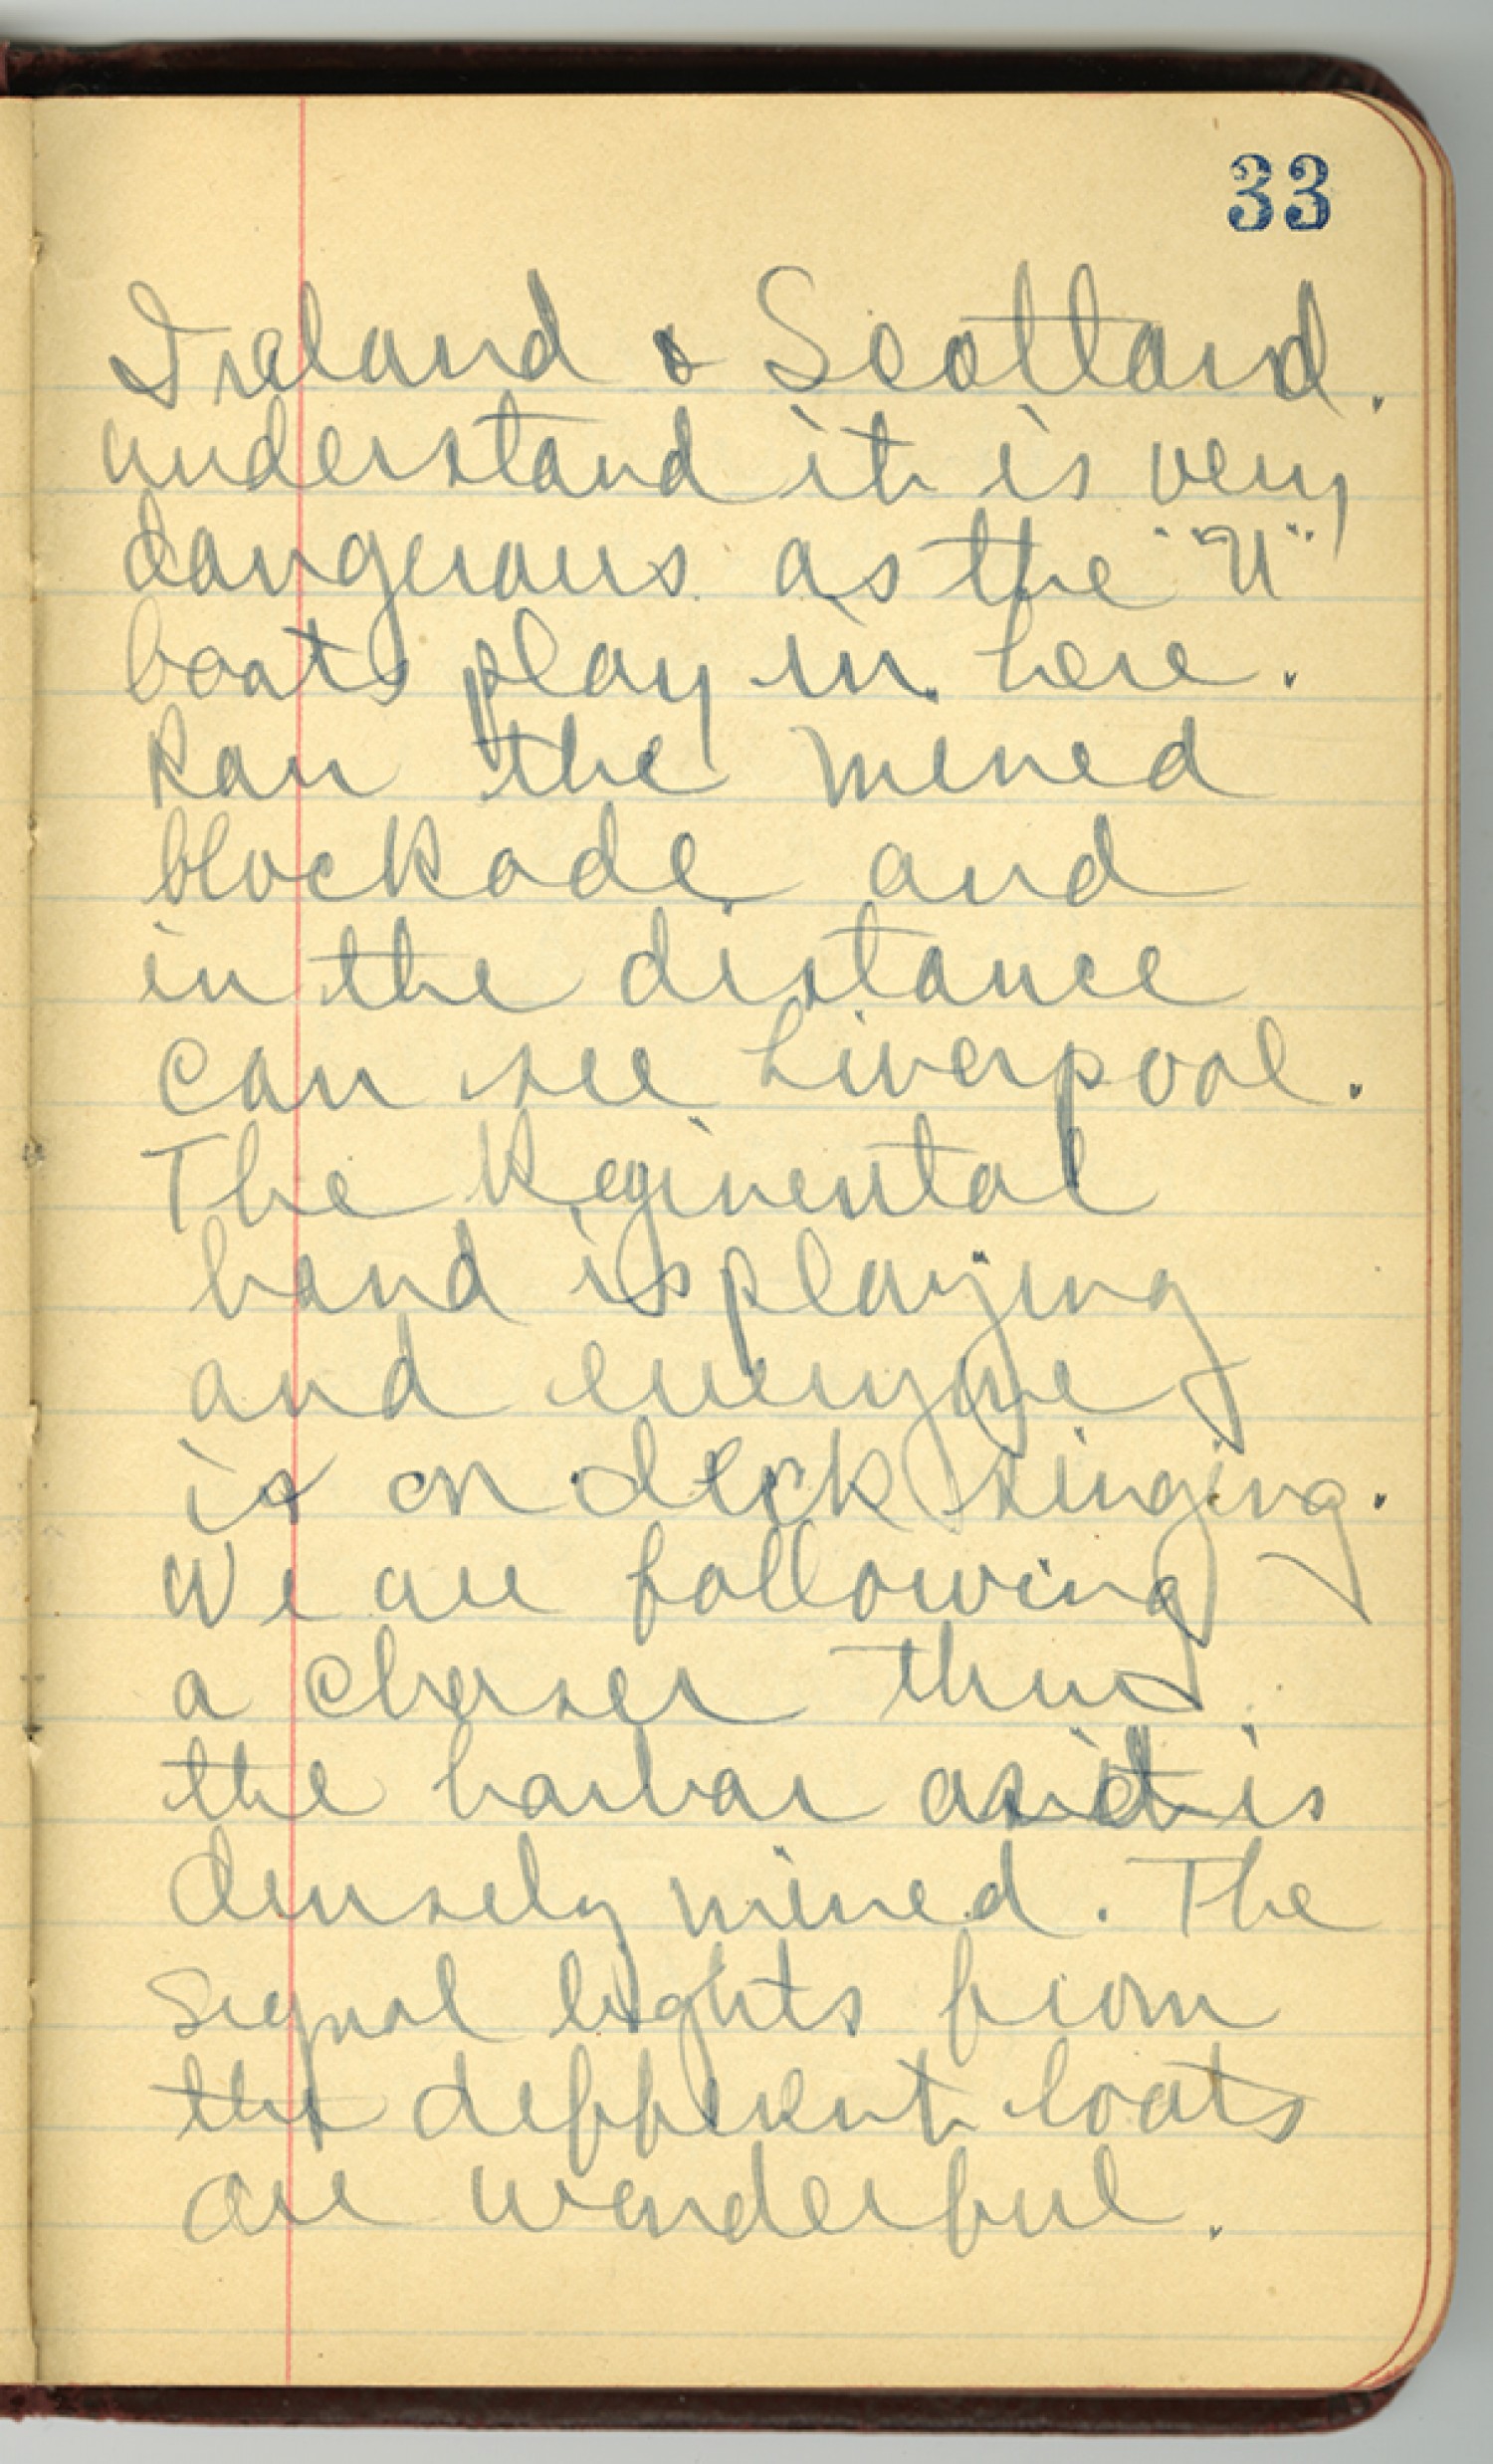 33
Ireland & Scotland.
understand it is very
dangerous as the "U"
boats play in here.
Ran the mined
blockade and
in the distance
can see Liverpool.
The Regimental
band is playing
and everyone
is on deck singing.
We are following
a chaser thru
the harbar as it is
densely mined. The
signal lights from
the different boats
are wonderful.